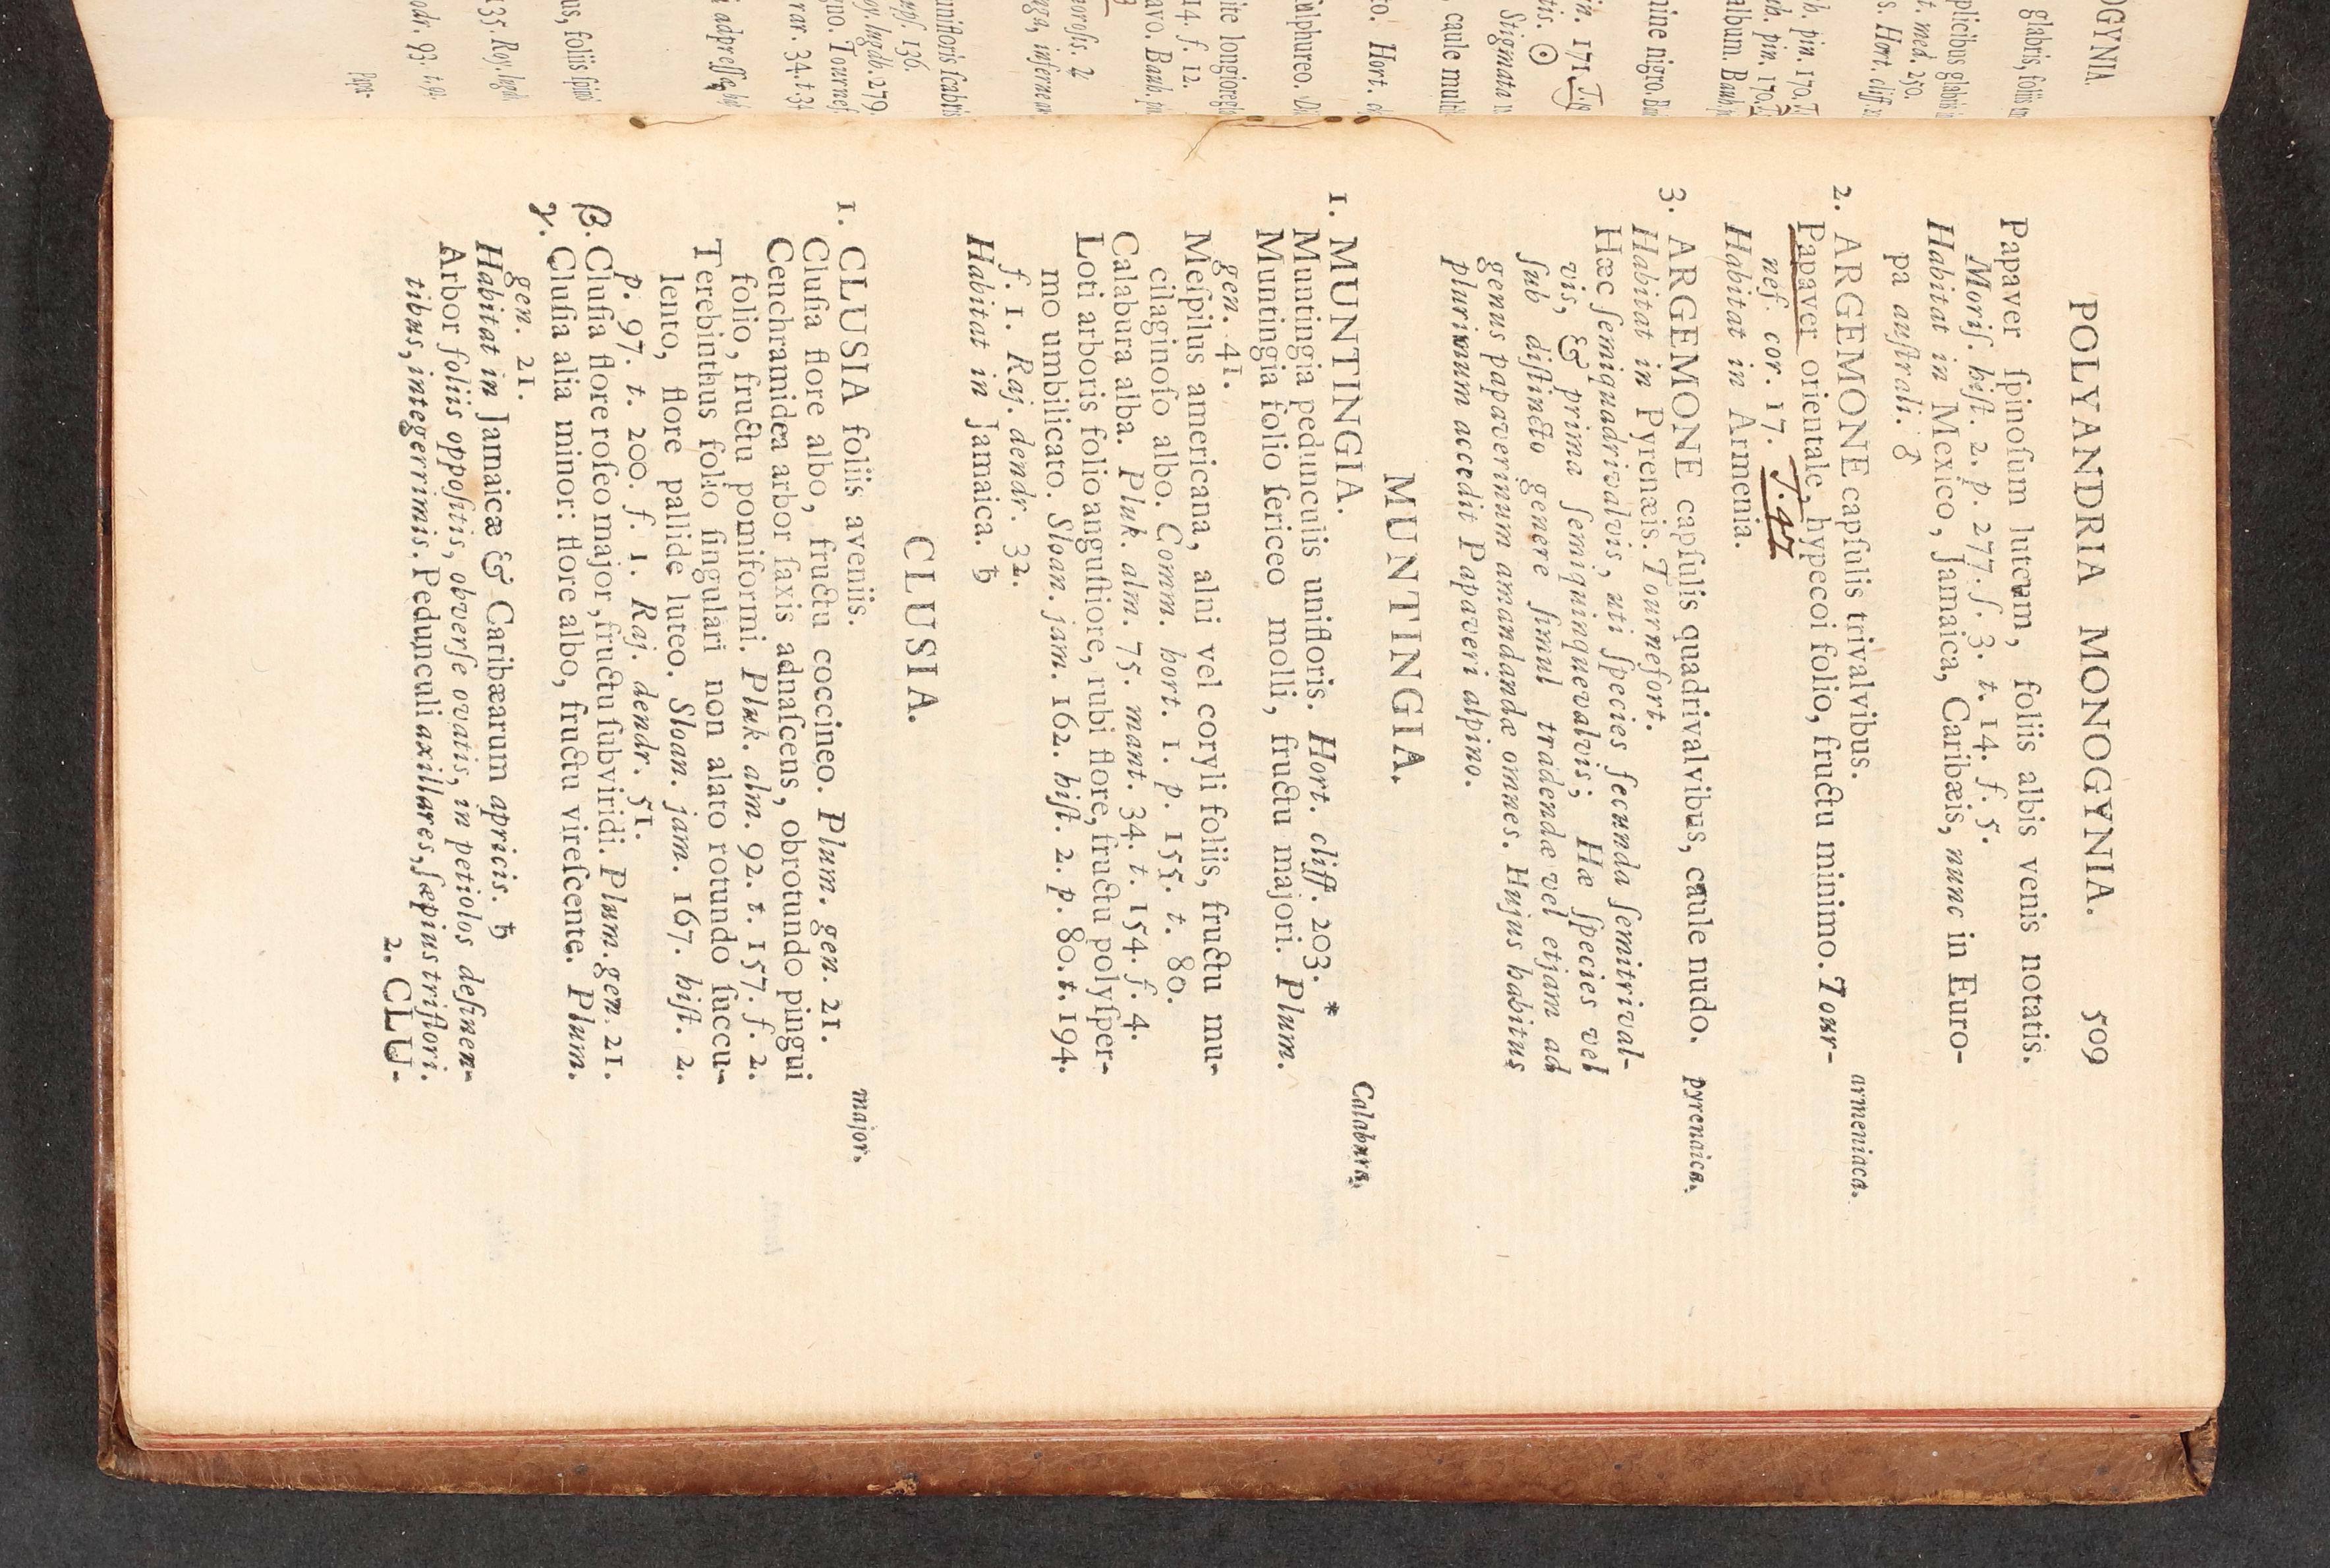 POLYANDRIA MONOGYNIA. 509
Papaver ſpinoſum luteum, foliis albis venis notatis.
Moriſ. hiſt. 2. p. 277. ſ. 3. t. 14. f. 5.
Habitat in Mexico, Jamaica, Caribæis, nunc in Euro-
pa auſtrali. ♂
2. ARGEMONE capſulis trivalvibus. armeniaca.
Papaver orientale, hypecoi folio, fructu minimo. Tour-
nef. cor. 17. T. 47
Habitat in Armenia.
3. ARGEMONE capſulis quadrivalvibus, caule nudo. pyrenaica.
Habitat in Pyrenæis. Tournefort.
Hæc ſemiquadrivalvis, uti ſpecies ſecunda ſemitrival-
vis, & prima ſemiquinquevalvis; Hæ ſpecies vel
ſub diſtincto genere ſimul tradendæ vel etjam ad
genus papaverinum amandandæ omnes. Hujus habitus
plurimum accedit Papaveri alpino.
MUNTINGIA.
1. MUNTINGIA. Calabura.
Muntingia pedunculis unifloris. Hort. cliff. 203. *
Muntingia folio ſericeo molli, fructu majori. Plum.
gen. 41.
Meſpilus americana, alni vel coryli foliis, fructu mu-
cilaginoſo albo. Comm. hort. 1. p. 155. t. 80.
Calabura alba. Pluk. alm. 75. mant. 34. t. 154. f. 4.
Loti arboris folio anguſtiore, rubi flore, fructu polyſper-
mo umbilicato. Sloan. jam. 162. hiſt. 2. p. 80. t. 194.
f. 1. Raj. dendr. 32.
Habitat in Jamaica. ♄
CLUSIA.
1. CLUSIA foliis aveniis. major.
Cluſia flore albo, fructu coccineo. Plum. gen. 21.
Cenchramidea arbor ſaxis adnaſcens, obrotundo pingui
folio, fructu pomiformi. Pluk. alm. 92. t. 157. f. 2.
Terebinthus folio ſingulari non alato rotundo ſuccu-
lento, flore pallide luteo. Sloan. jam. 167. hiſt. 2.
p. 97. t. 200. f. 1. Raj. dendr. 51.
β. Cluſia flore roſeo major, fructu ſubviridi. Plum. gen. 21.
γ. Cluſia alia minor: flore albo, fructu vireſcente. Plum.
gen. 21.
Habitat in Jamaicæ & Caribæarum apricis. ♄
Arbor foliis oppoſitis, obverſe ovatis, in petiolos deſinen-
tibus, integerrimis. Pedunculi axillares, ſæpius triflori.
2. CLU-